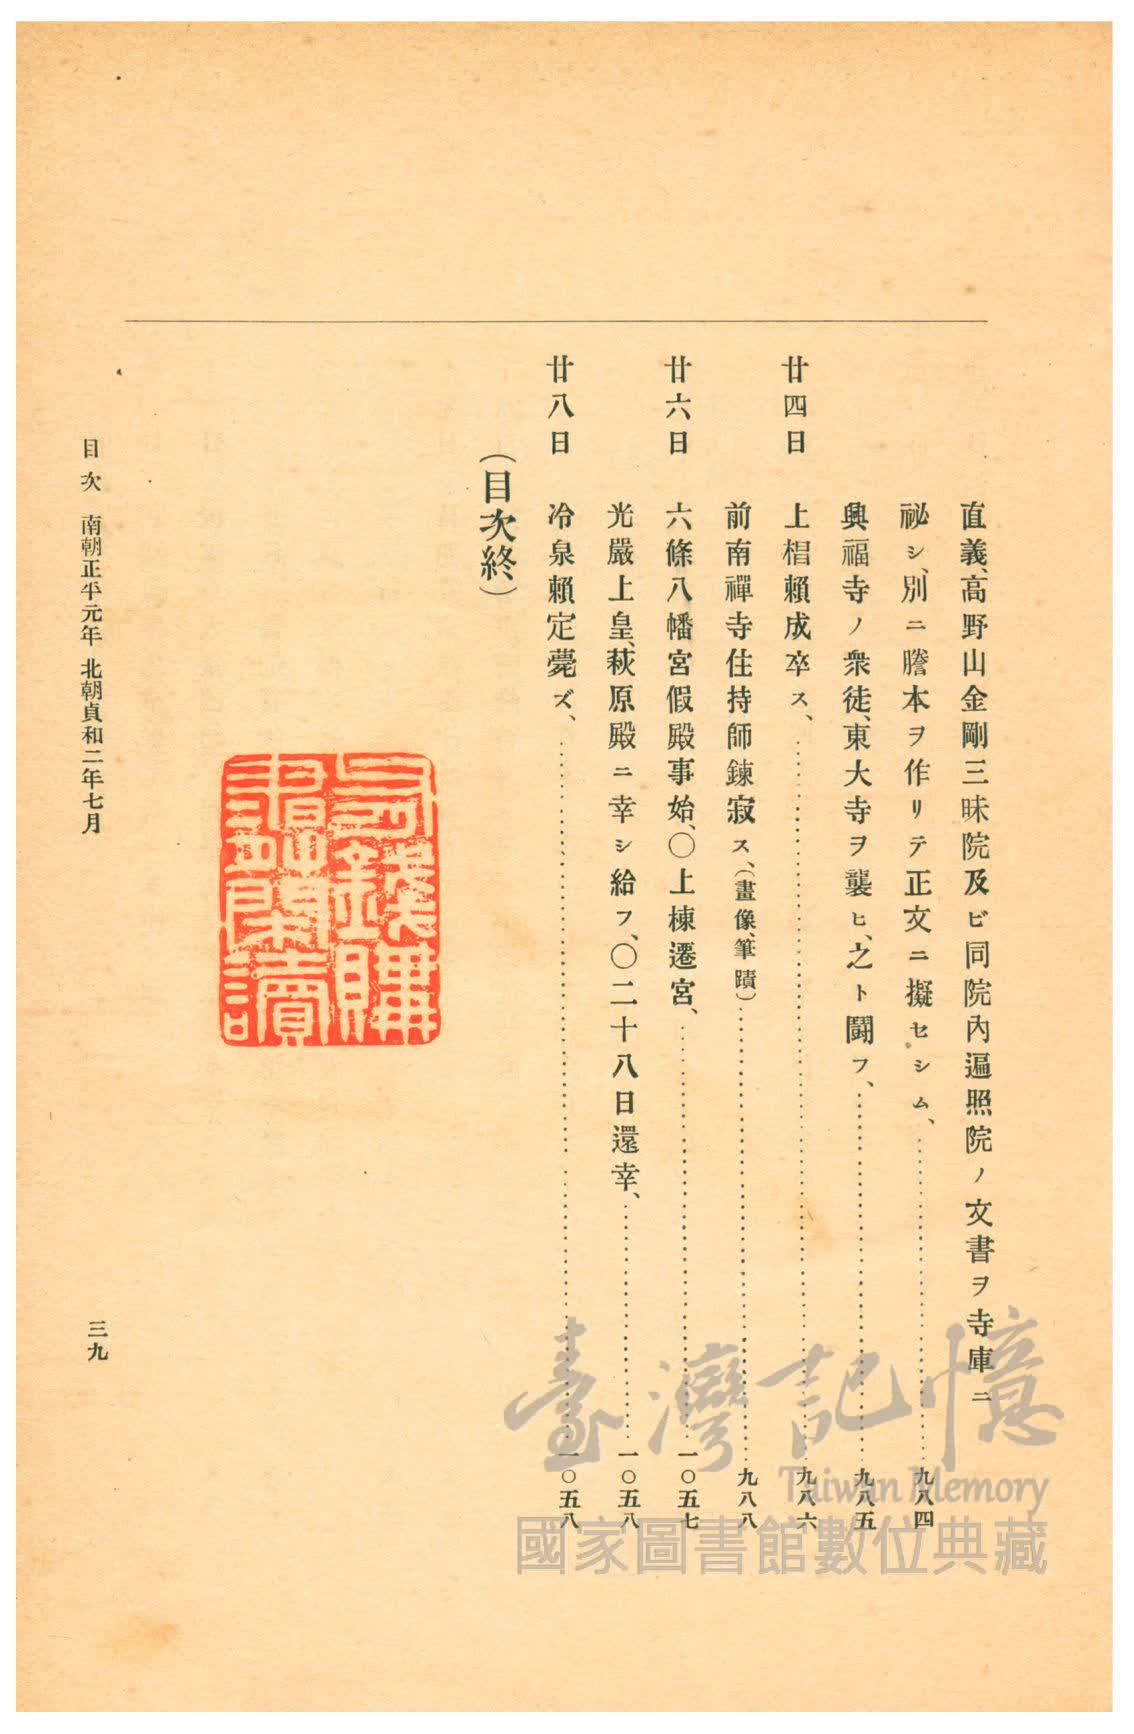 直義、高野山金剛三昧院及ビ同院內遍照院ノ文書ヲ寺庫ニ
祕シ、別ニ謄本ヲ作リテ正文ニ擬セシム、……九八四
興福寺ノ衆徒、東大寺ヲ襲ヒ、之ト鬪フ、……九八五
廿四日 上椙賴成卒ス、……九八六
前南禪寺住持師鍊寂ス、(畫像、筆蹟)……九八八
廿六日 六條八幡宮假殿事始、〇上棟遷宮、……一〇五七
光嚴上皇、萩原殿ニ幸シ給フ、〇二十八日還幸、……一〇五八
廿八日 冷泉賴定薨ズ、……一〇五八
(目次終)
目次 南朝正平元年 北朝貞和二年七月 三九
臺灣記憶
Taiwan Memory
國家圖書館數位典藏